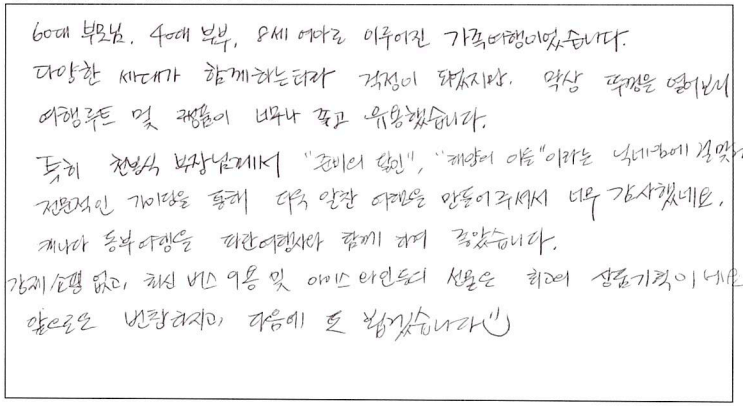 60대 부모님, 40대 부부, 8세 여아로 이루어진 가족여행이었습니다.
다양한 세대가 함께하는터라 걱정이 되었지만, 막상 뚜껑을 열어보니
여행루트 및 너무나 좋고 유용했습니다.
특히 부장님께서 "준비의 달인", "태양의 아들"이라는 닉네임에 걸맞
전문적인 가이딩을 통해 더욱 알찬 여행을 만들어주셔서 너무 감사했네요.
캐나다 동부여행을 파란여행사와 함께 하여 좋았습니다.
강제쇼핑 없고, 최신 버스 이용 및 아이스와인 등의 선물은 최고의 상품기획이네요
앞으로도 번창하시고, 다음에 또 뵙겠습니다